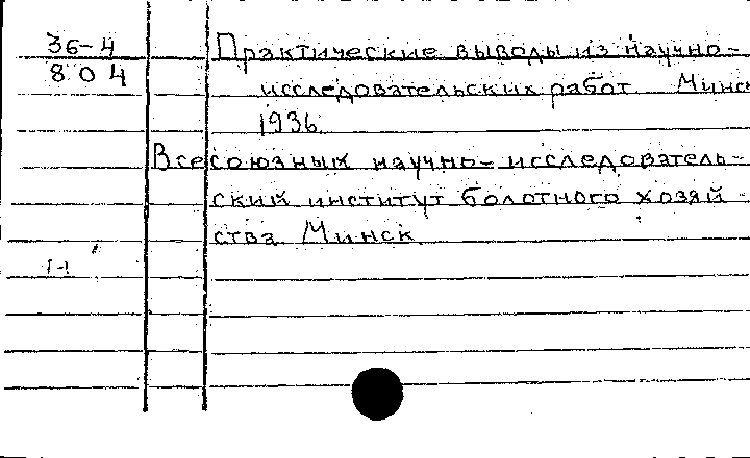 36-4
804
Практические выводы из научно-
исследовательских работ Минск
1936
Всесоюзных научно-исследователь-
ский институт болотного хозяй-
ства Минск